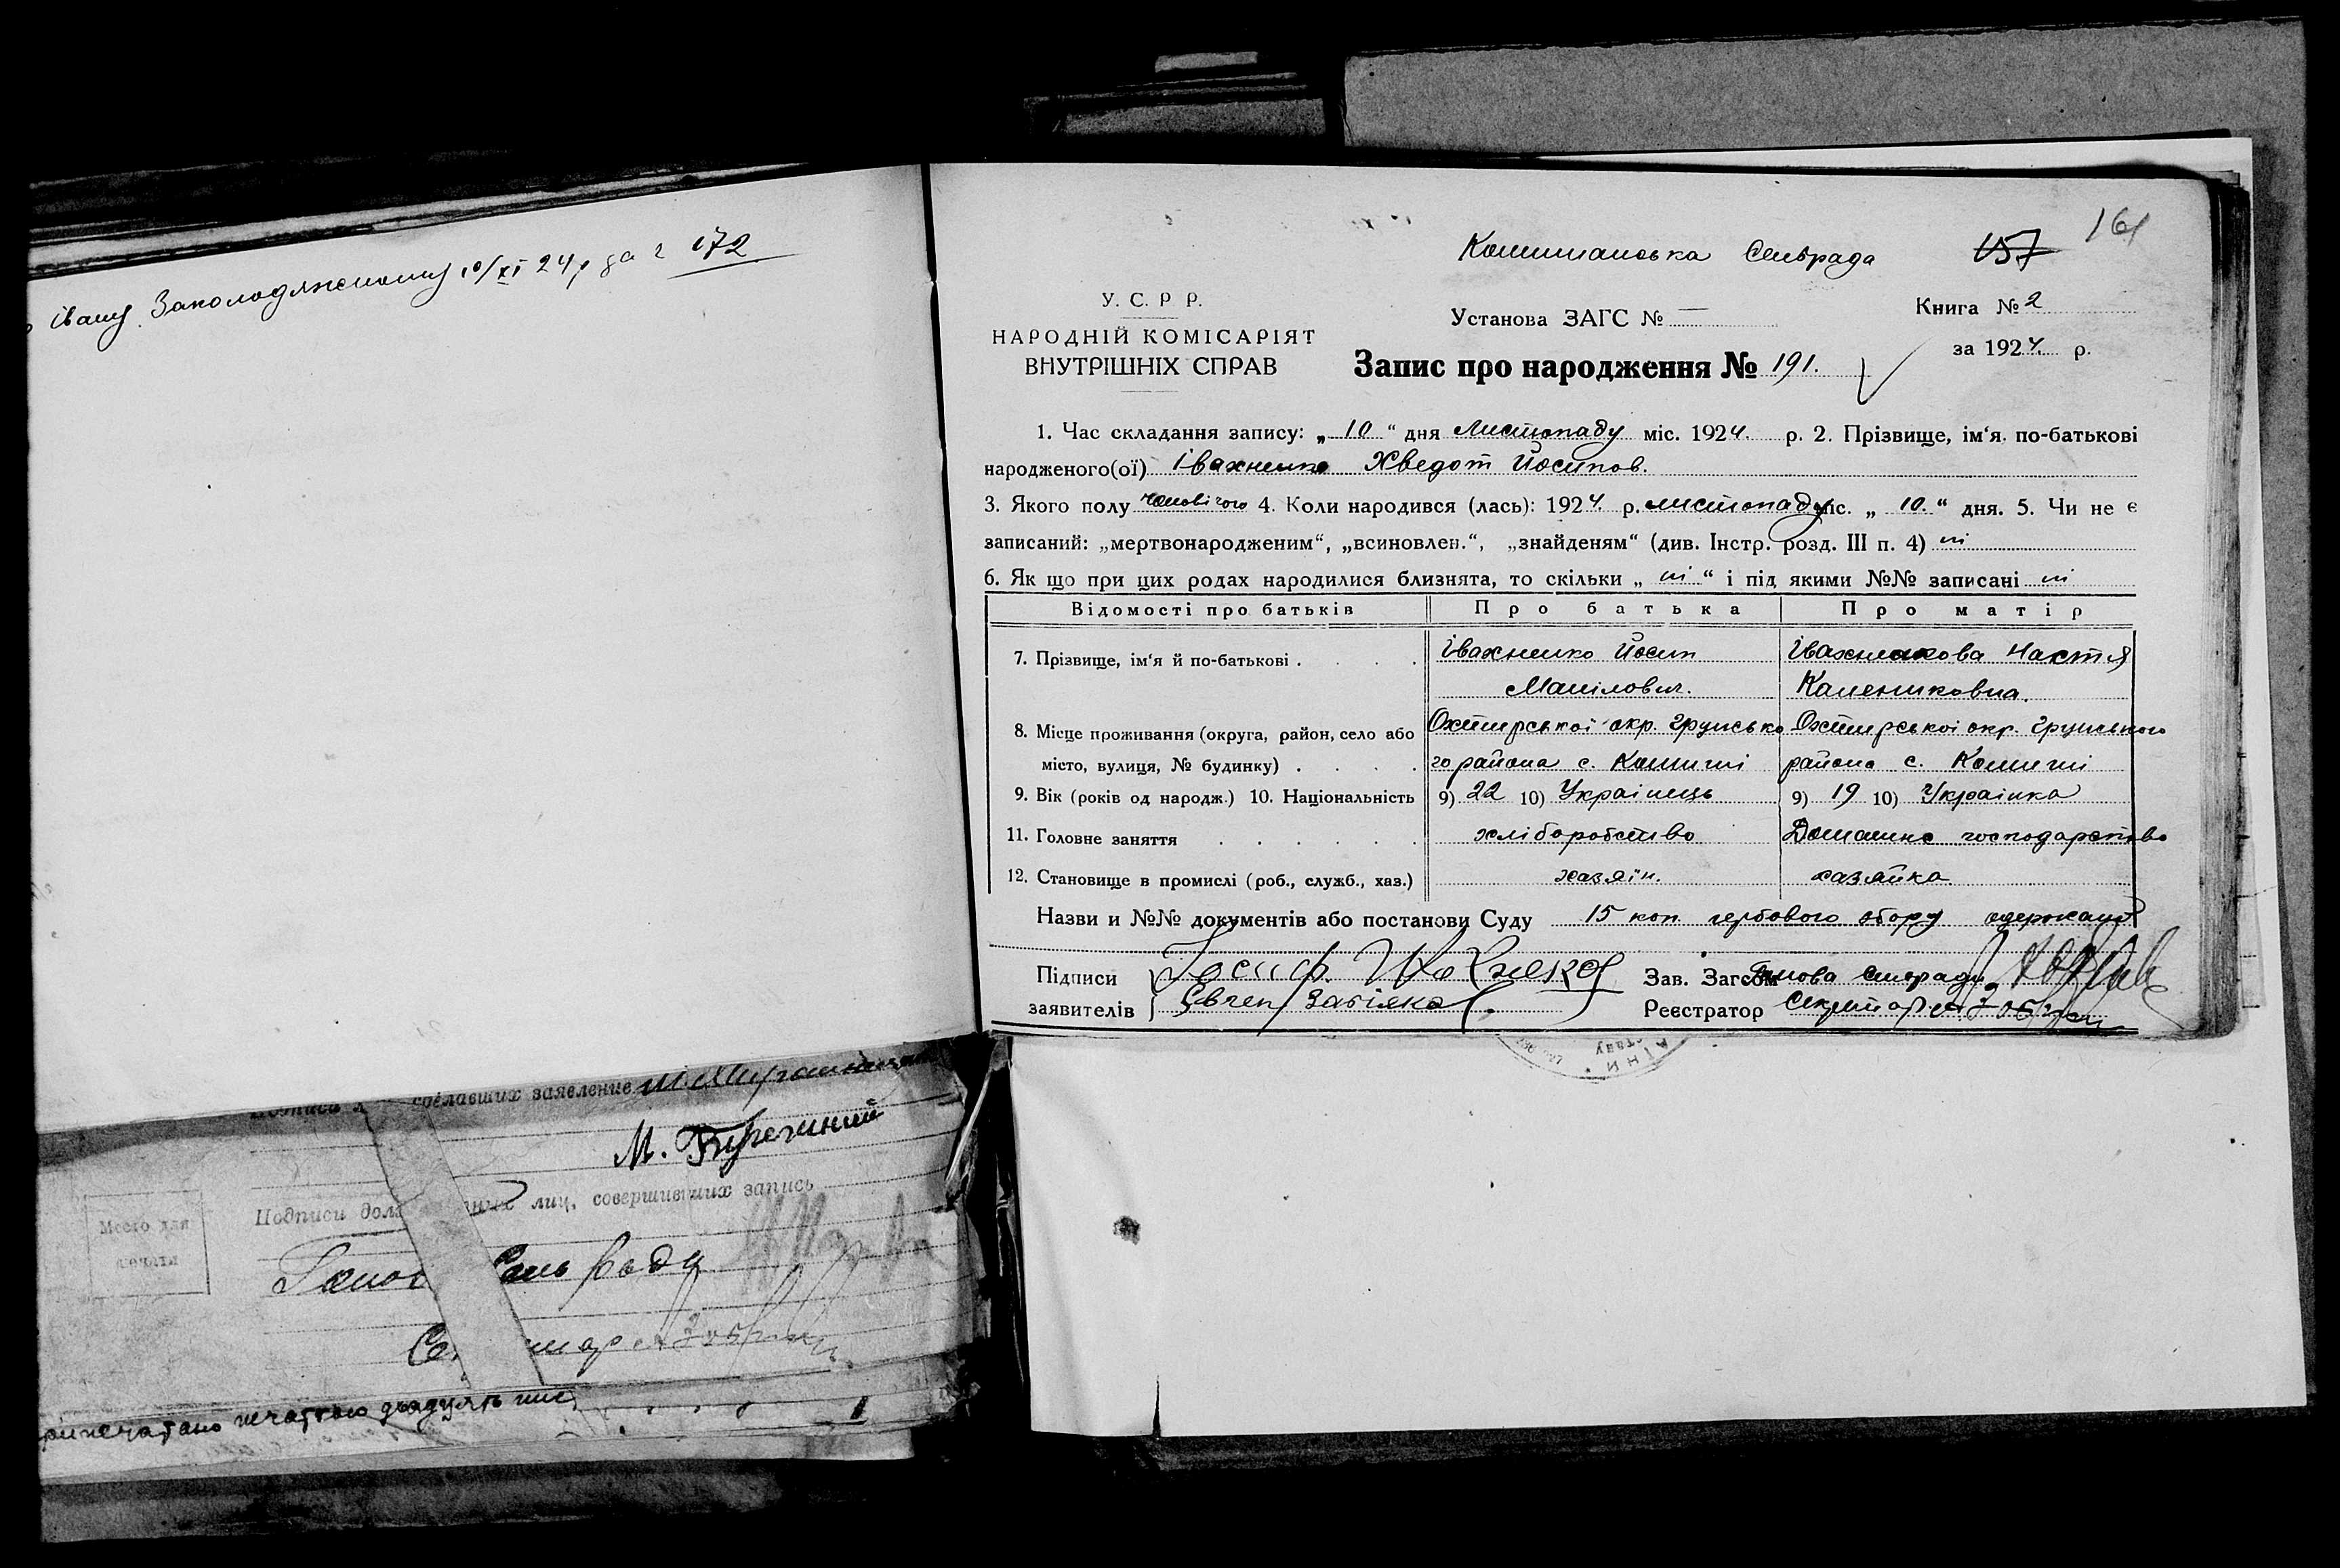 івану Заколодяжному 10/XI 24 р за № 172
Комишанська Сельрада
157
161
У. С. Р Р.
НАРОДНІЙ КОМІСАРІЯТ
ВНУТРІШНІХ СПРАВ
Установа ЗАГС № —
Книга № 2
за 1924. р.
Запис про народження № 191.
1. Час складання запису: „ 10 “ дня Листопаду міс. 1924. р. 2. Прізвище, ім‘я. по-батькові
народженого(ої) Івахненко Хведот Йосипов.
3. Якого полу чоловічого 4. Коли народився (лась): 1924. р. листопаду міс. „ 10. “ дня. 5. Чи не є
записаний: „мертвонародженим“, „всиновлен.“, „знайденям“ (див. Інстр. розд. III п. 4) ні
6. Як що при цих родах народилися близнята, то скільки „ ні “ і під якими №№ записані ні
Відомості про батьків Про батька Про матір
7. Прізвище, ім‘я й по-батькові . . . . Івахненко Йосип Івахненкова Настя
Манілович.
8. Місце проживання (округа, район, село або Охтирської окр. Грунсько Охтирської окр. Грунського
місто, вулиця, № будинку) . . . . го района с. Комиші района с. Комиші
9. Вік (років од народж.) 10. Національність 9) 22 10) Українець 9) 19 10) Українка
11. Головне заняття . . . . . . хліборобство Домашнє господарство
12. Становище в промислі (роб., служб., хаз.) хазяїн. хазяйка
Назви и №№ документів або постанови Суду 15 коп гербового збору одержано
Підписи Іосиф Ивахненко Зав. Загсом Голова сільради
заявителів Євген Забіяка Реєстратор Секретар
сделавших заявление
М.
Подписи лиц, совершивших запись
Место для
печати
Голов Сель Ради
припечатано печаткою
1